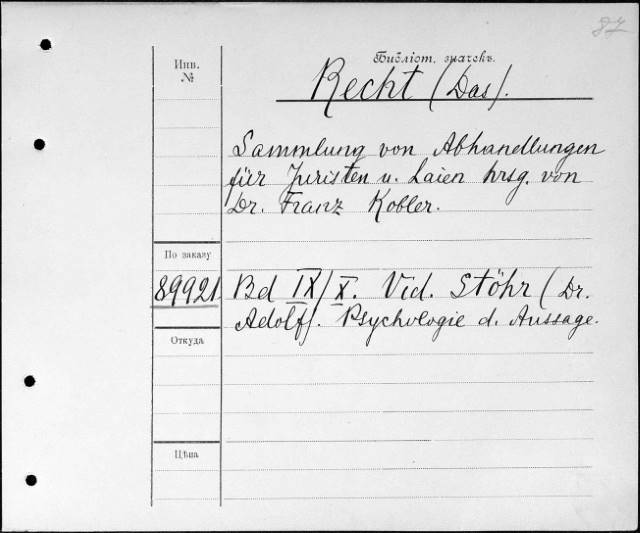 87
Инв.
№
Библіот. значекъ.
Recht (Das).
Sammlung von Abhandlungen
für Juristen u. Laien hrsg. von
Dr. Franz Kobler.
По заказу
89921
Bd IX/X. Vid. Stöhr (Dr.
Adolf). Psychologie d. Aussage.
Откуда
Цѣна